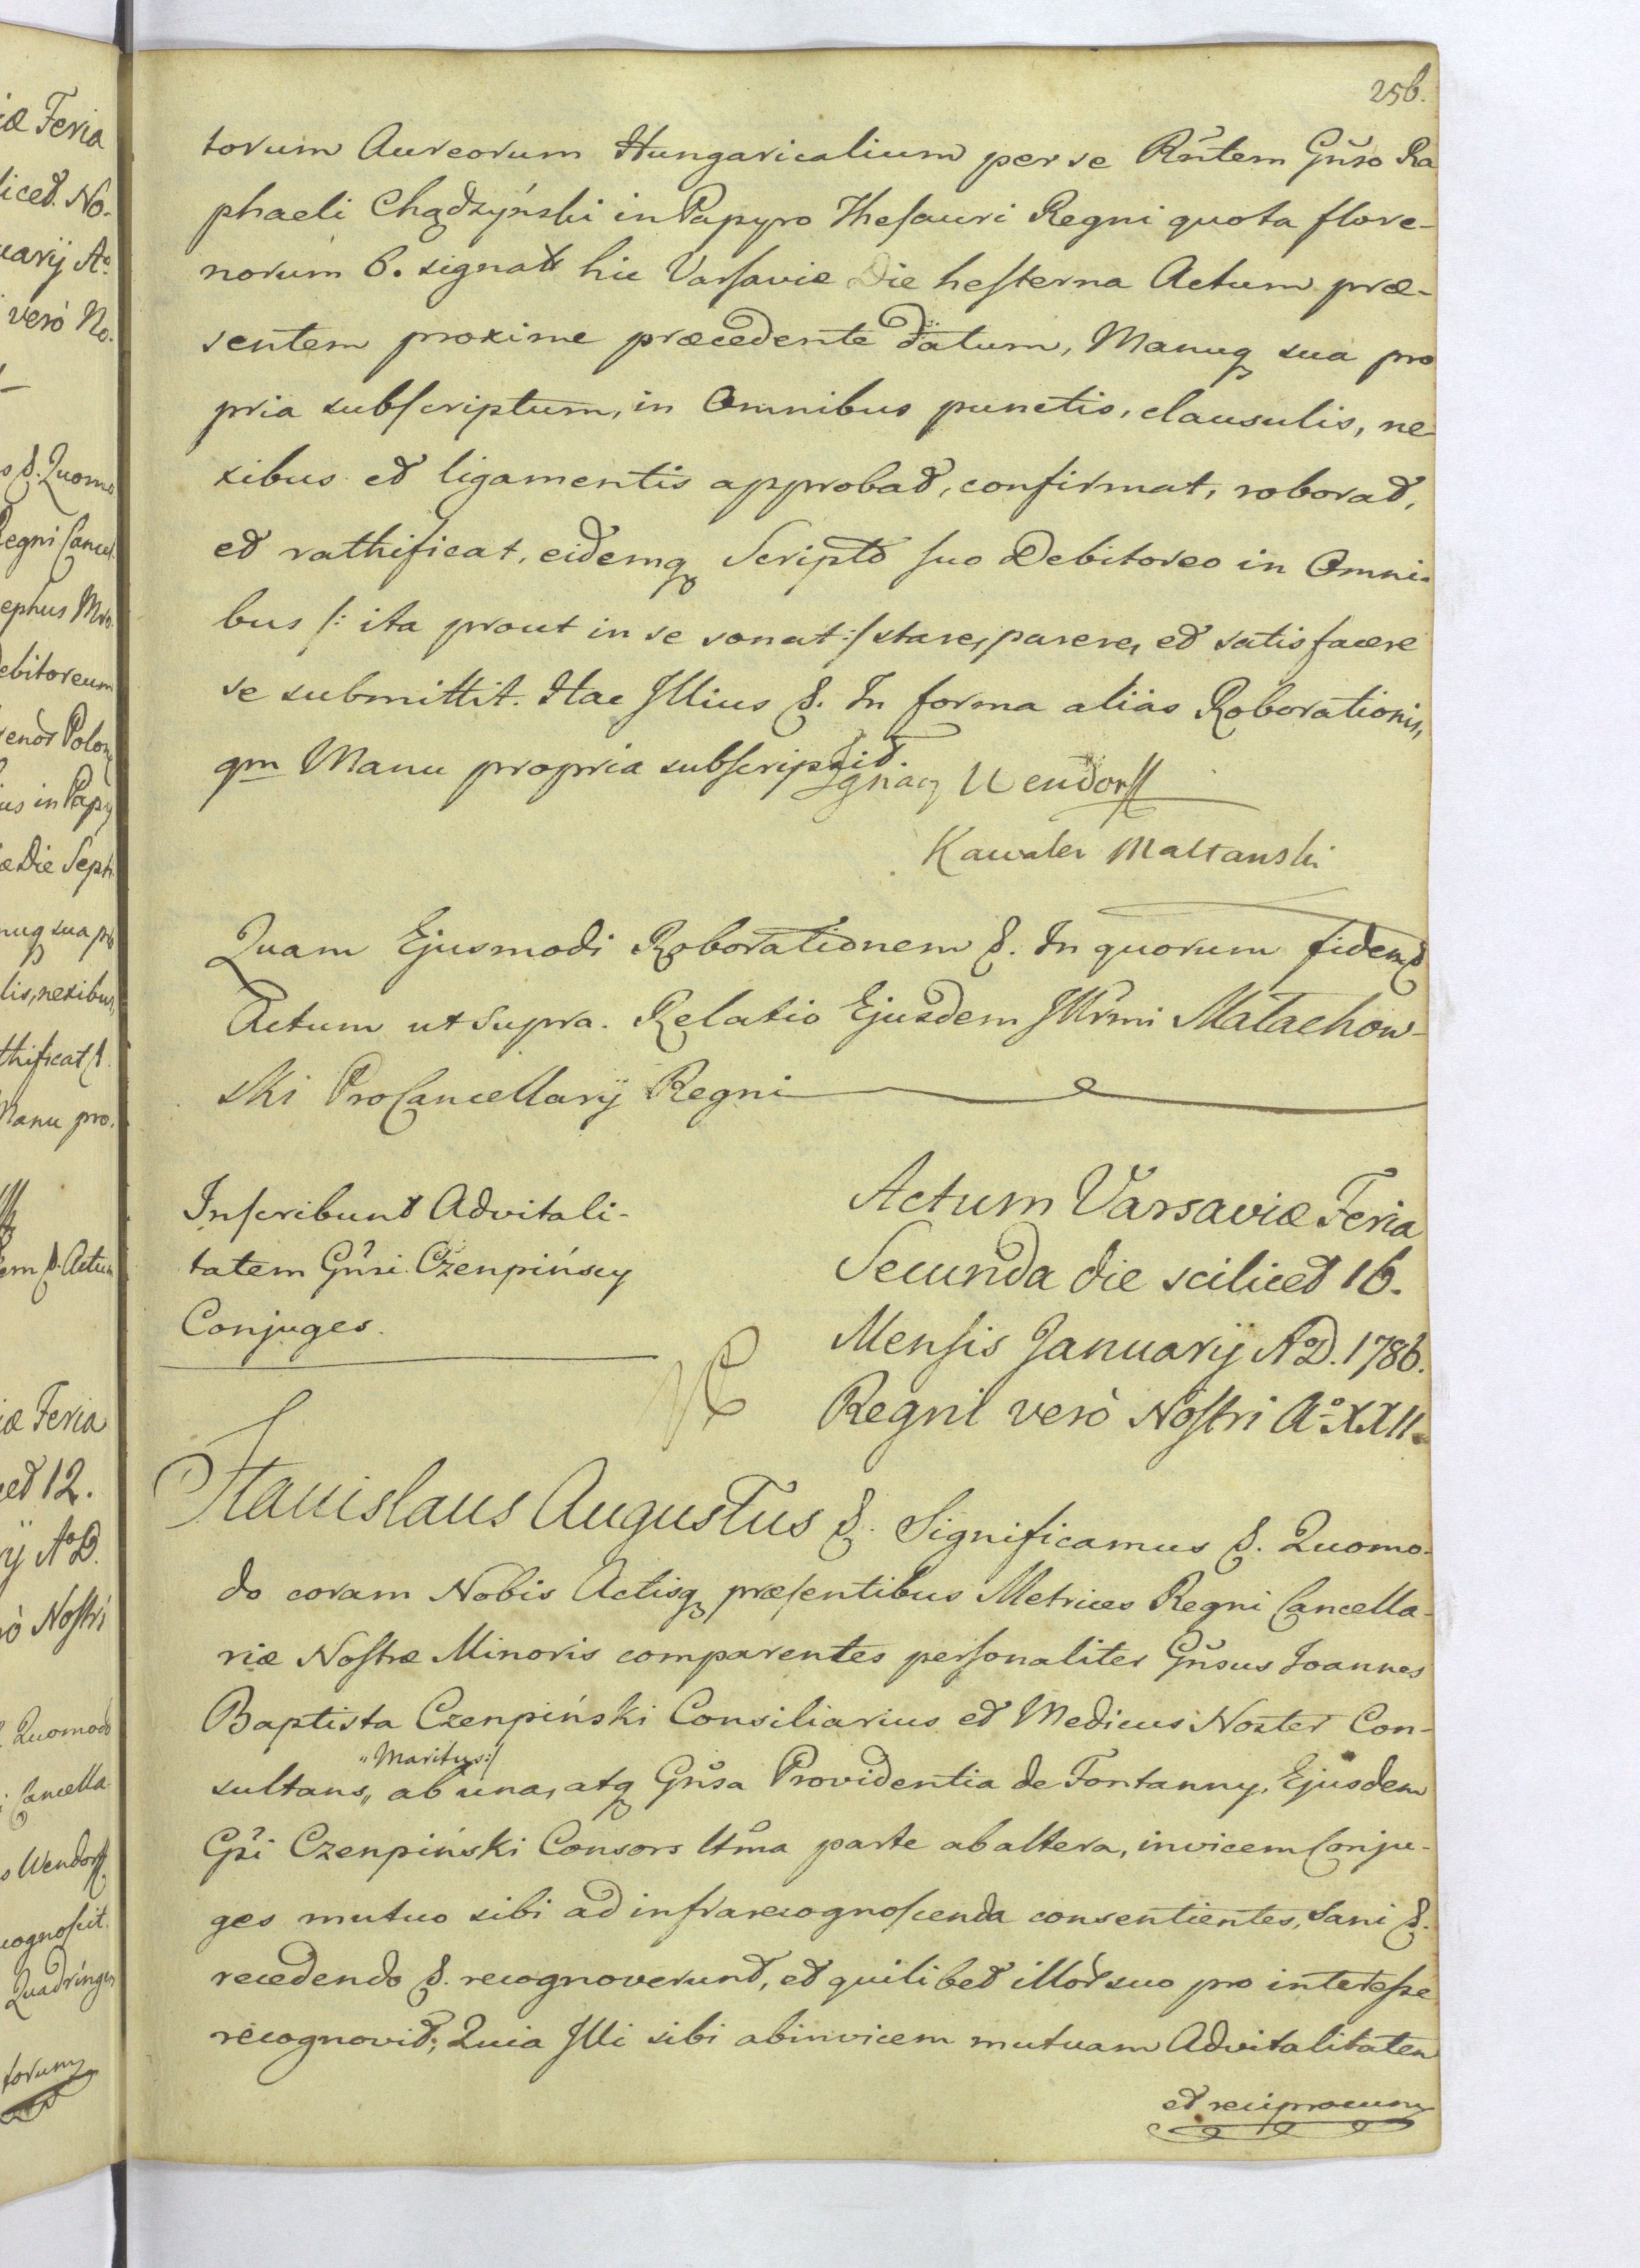 256.
torum Aureorum Hungaricalium per se Rñtem Gñso Ra
phaeli Chądzyński in Papyro Thesauri Regni quota flore-
norum 6. signato hic Varsaviæ Die hesterna Actum præ-
sentem proxime præcedente datum, Manuq sua pro
pria subscriptum, in Omnibus punctis, clausulis, ne
xibus et ligamentis approbat, confirmat, roborat,
et rathificat, eidemq Scripto suo Debitoreo in Omni-
bus /: ita prout in se sonat :/ stare, parere, et satisfacere
se submittit. Hac Illius &. In forma alias Roborationis,
qm Manu propria subscripsit.
Ignacy Wendorff
Kawaler Maltanski
Quam Ejusmodi Roborationem &. In quorum fidem &
Actum ut supra. Relatio Ejusdem Illr̃mi Małachow-
ski ProCancellarij Regni
Inscribunt Advitali-
tatem Gñsi Czenpińscy
Conjuges.
Actum Varsaviæ Feria
Secunda die scilicet 16.
Mensis Januarij A.D. 1786.
Regni verò Nostri Aº XXII.
Stanislaus Augustus &. Significamus &. Quomo-
do coram Nobis Actisq præsentibus Metrices Regni Cancella-
riæ Nostræ Minoris comparentes personaliter Gñsus Joannes
Baptista Czenpiński Consiliarius et Medicus Noster Con-
"Maritus:/
sultans,, ab una, atq Gñsa Providentia de Fontanny, Ejusdem
Gsi Czenpiński Consors ltm̃a parte ab altera, invicem Conju-
ges mutuo sibi ad infrarecognoscenda consentientes, sani &.
recedendo &. recognoverunt, et quilibet illor suo pro interesse
recognovit; Quia Illi sibi abinvicem mutuam Advitalitatem
et reciprocum